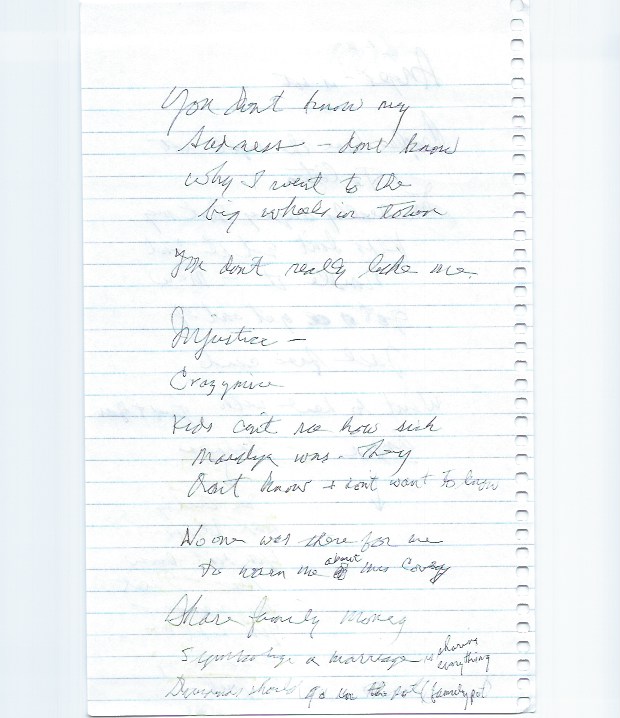 You don't know my
sadness - don't know
why I went to the
big wheels in town
You don't really like me.
Injustice -
Crazy mice
Kids can't see how sick
was. They
Don't know + don't want to know
No one was there for me
to warn me about this
Share family money
Symbology a marriage is sharing everything
Dividends should go in the pot (family pot